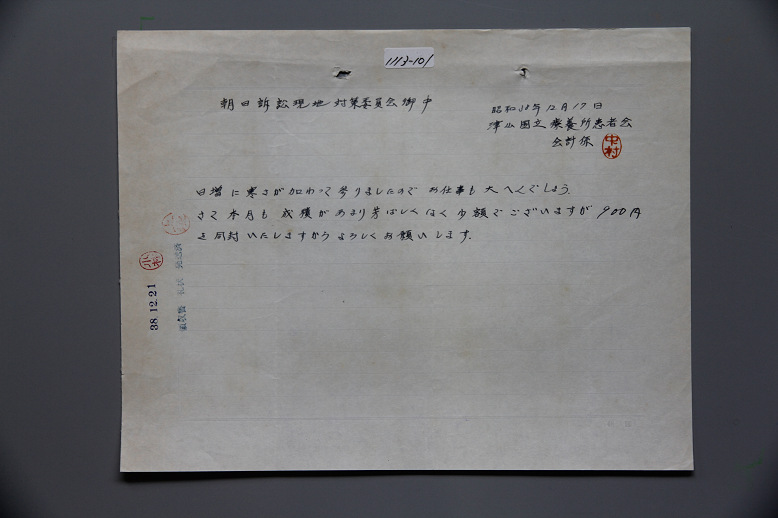 1113-101
朝日訴訟現地対策委員会御中
昭和38年12月17日
津山国立療養所患者会
会計係
中村
日増に寒さが加わって参りましたので お仕事も大へんでしょう
さて本月も成績があまり芳ばしくなく少額でございますが 900円
を同封いたしますからよろしくお願いします.
38.12.21
領収書 礼状 発送済